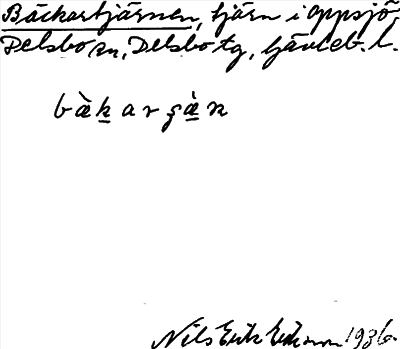 Bäckartjärnen, tjärn i Oppsjö,
Delsbo sn, Delsbo tg, Gävleb. l.
bæ̀k̲argæ̲̀n
Nils Erik Eriksson 1936.